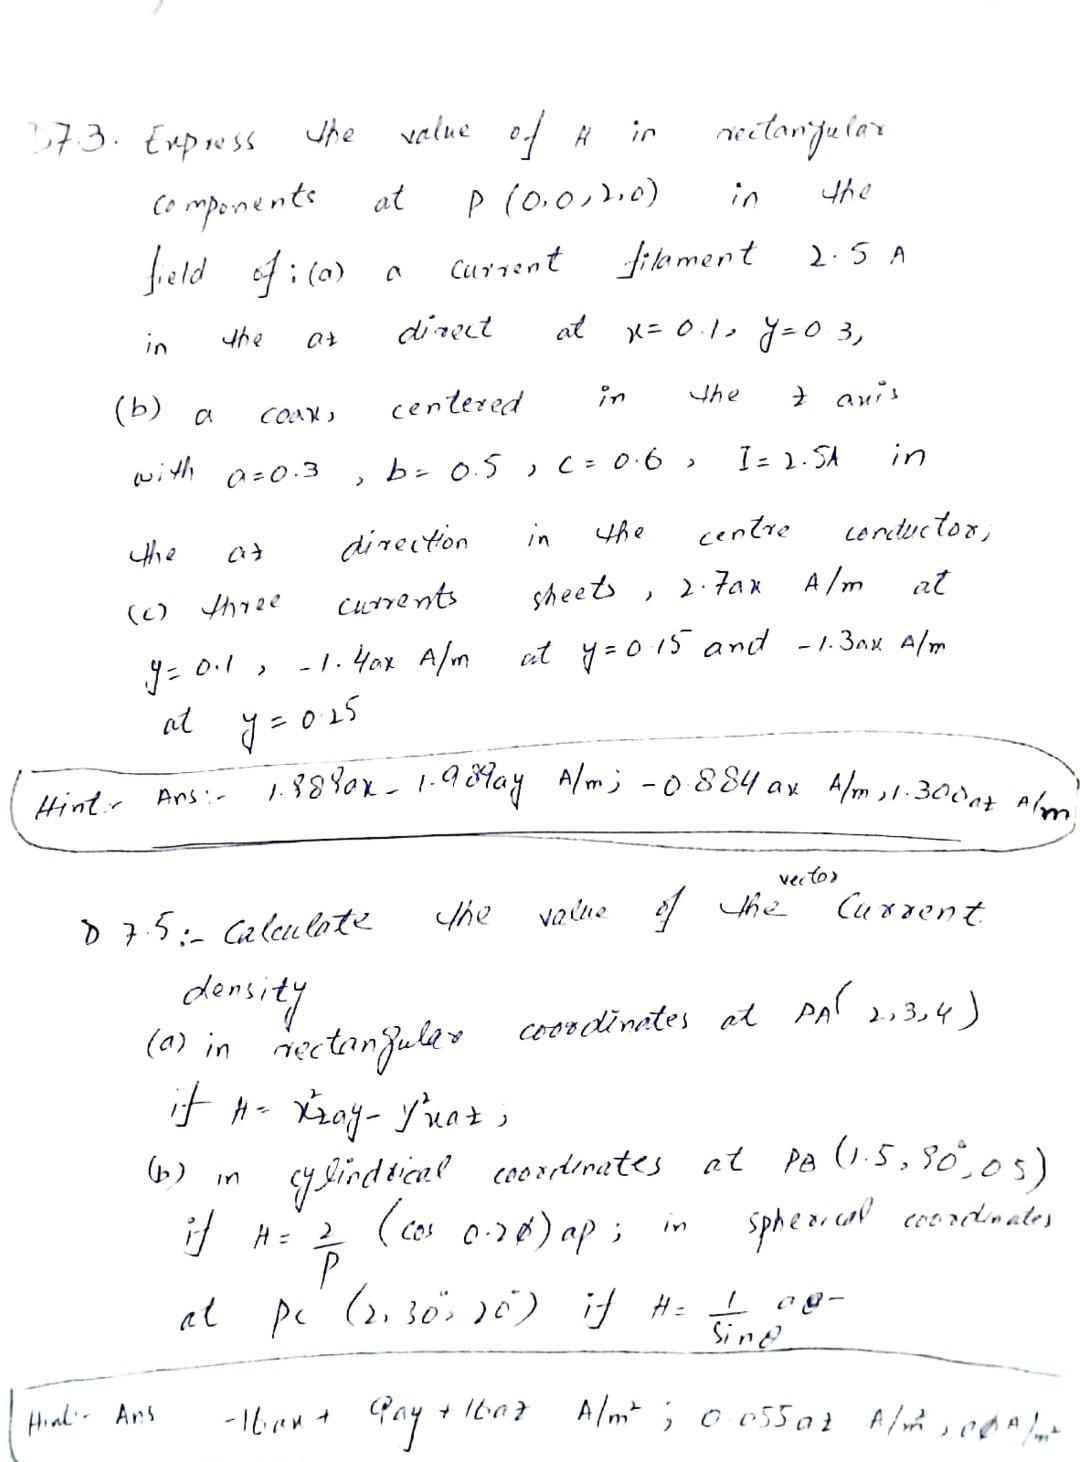 D7.3. Express the value of H in rectangular
components at P (0,0,2,0) in the
field of: (a) a current filament 2.5 A
in the az direct at x= 0.1, y=0.3,
(b) a coax, centered in the z axis
with a=0.3, b= 0.5, c= 0.6, I= 2.5A in
the az direction in the centre conductor,
(c) three currents sheets, 2.7ax A/m at
y= 0.1, -1.4ax A/m at y=0.15 and -1.3ax A/m
at y=0.25
Hint:- Ans:- 1.989ax - 1.989ay A/m; -0.884 ax A/m, 1.300az A/m
vector
D 7.5:- Calculate the value of the Current
density
(a) in rectangular coordinates at PA( 2,3,4)
if H= x²zay- y²xaz;
(b) in cylindrical coordinates at PB (1.5, 90°, 05)
if H= 2/ρ (cos 0.2φ) aρ; in spherical coordinates
at Pc (2, 30°, 20°) if H= 1/Sinθ aθ-
Hint:- Ans -16ax + 9ay + 16az A/m²; 0.055az A/m², aφ A/m²